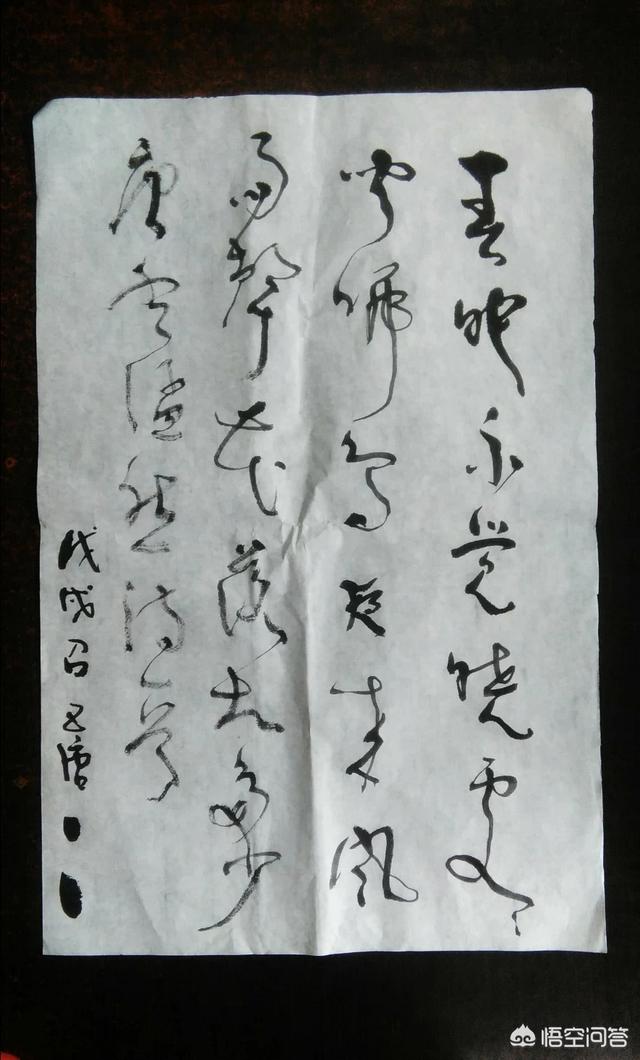 春眠不觉晓处々
闻啼鸟夜来风
雨聲花落知多少
唐孟浩然诗一首
戊戌
悟空问答